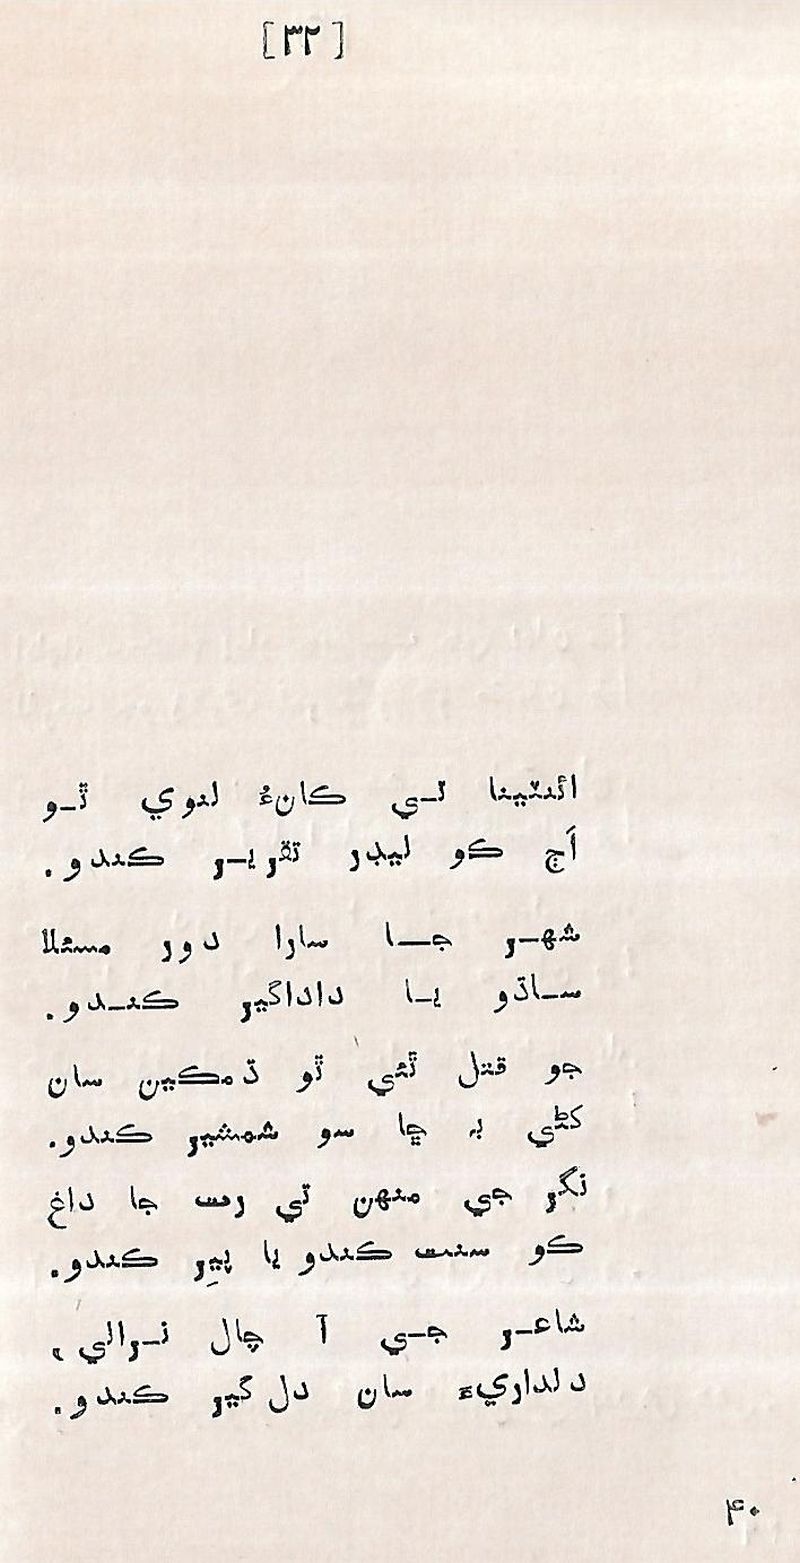 [۳۲]
ائنٽينا تي ڪانءُ لنوي ٿو
اَڄ ڪو ليڊر تقرير ڪندو.
شهر جا سارا دور مسئلا
ساڌو يا داداگير ڪندو.
جو قتل ٿئي ٿو ڌمڪين سان
کڻي بہ ڇا سو شمشير ڪندو.
نگر جي منهن تي رت جا داغ
ڪو سنت ڪندو يا پيِر ڪندو.
شاعر جي آ چال نرالي،
دلداريءَ سان دل گير ڪندو.
۴۰